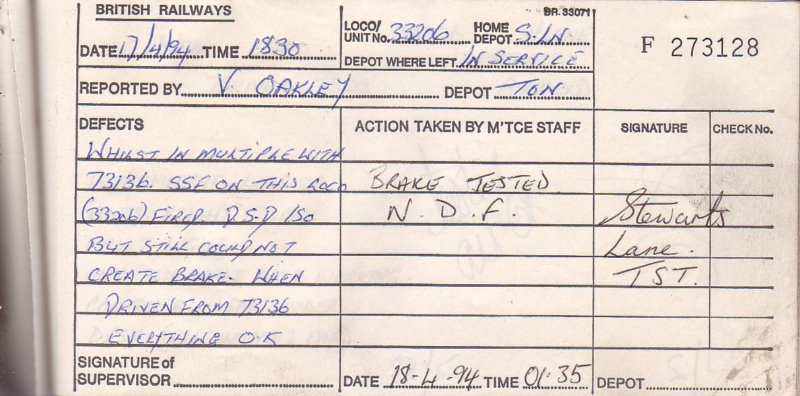 BRITISH RAILWAYS
BR. 33071
DATE 17/4/94 TIME 1830
LOCO/ UNIT No. 33206 HOME DEPOT S.LN
F 273128
DEPOT WHERE LEFT IN SERVICE
REPORTED BY V OAKLEY DEPOT TON
DEFECTS ACTION TAKEN BY M'TCE STAFF SIGNATURE CHECK No.
WHILST IN MULTIPLE WITH
73136. SSF ON THIS LOCO BRAKE TESTED
(33206) FIRED. D.S.D ISO N.D.F. Stewarts
BUT STILL COULD NOT Lane.
CREATE BRAKE. WHEN TST.
DRIVEN FROM 73136
EVERYTHING O-K
SIGNATURE of SUPERVISOR DATE 18-4-94 TIME 01:35 DEPOT